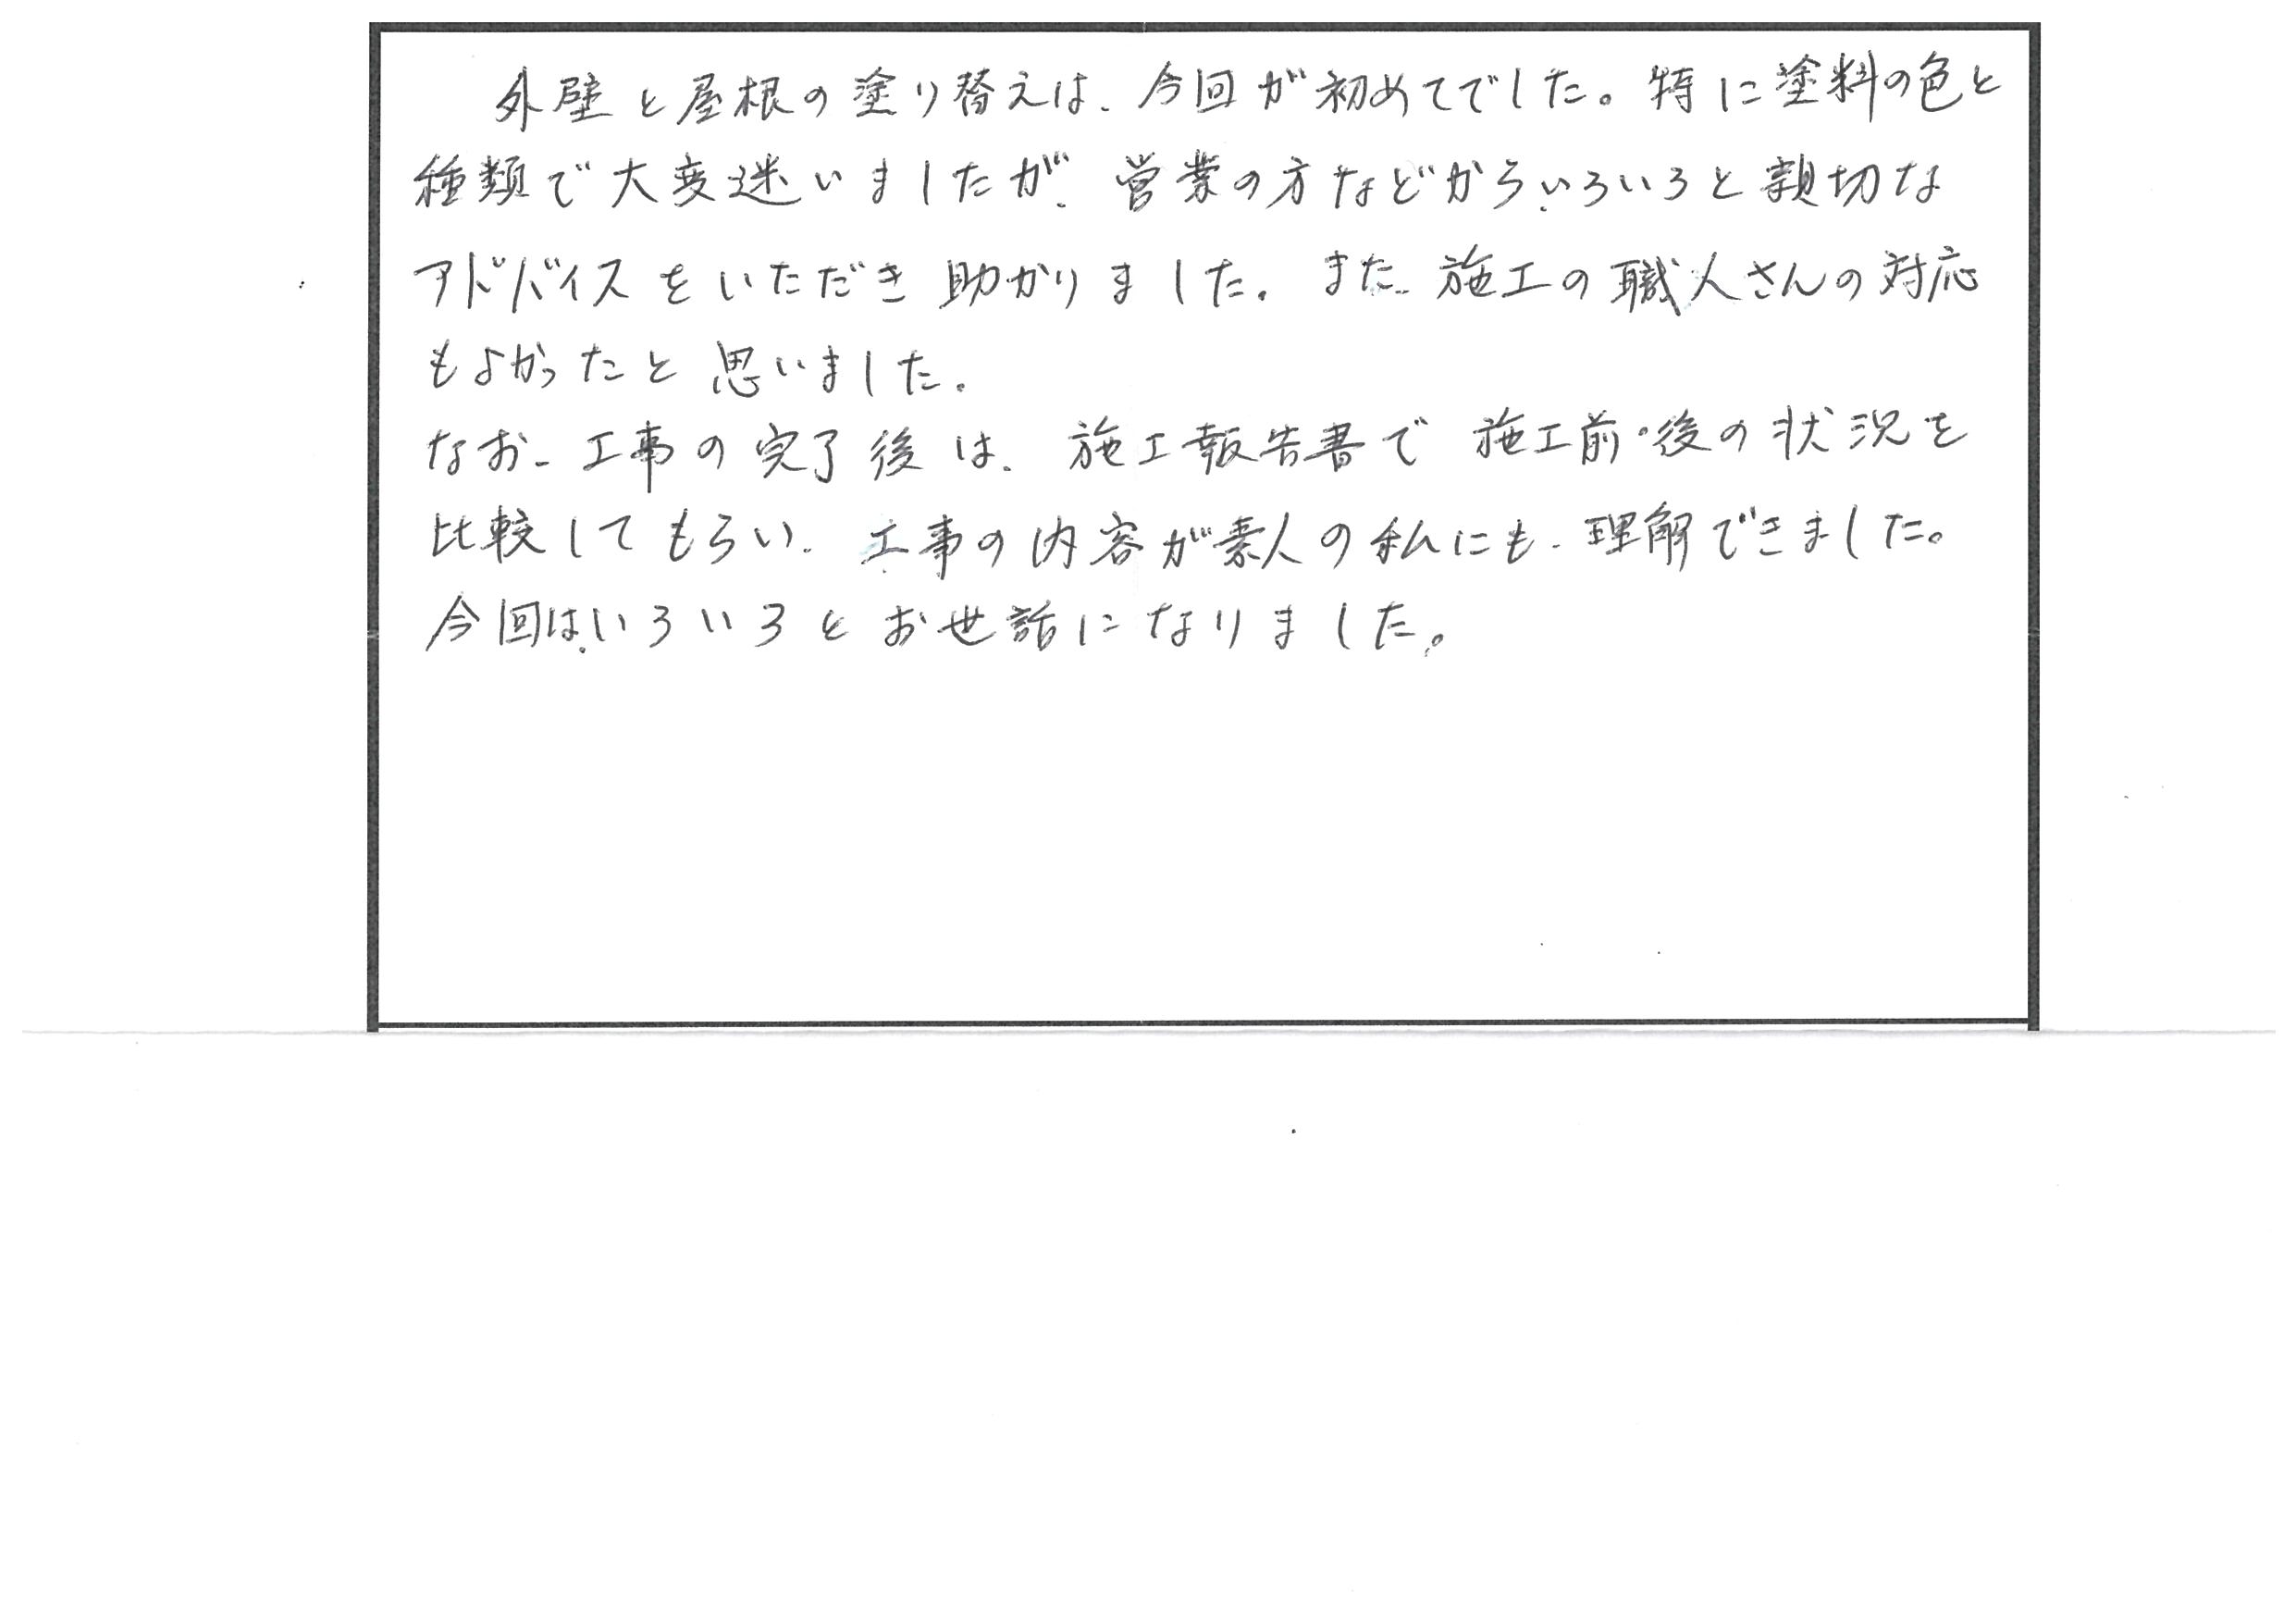 外壁と屋根の塗り替えは、今回が初めてでした。特に塗料の色と
種類で大変迷いましたが、営業の方などからいろいろと親切な
アドバイスをいただき助かりました。また、施工の職人さんの対応
もよかったと思いました。
なお、工事の完了後は、施工報告書で施工前・後の状況を
比較してもらい、工事の内容が素人の私にも、理解できました。
今回はいろいろとお世話になりました。